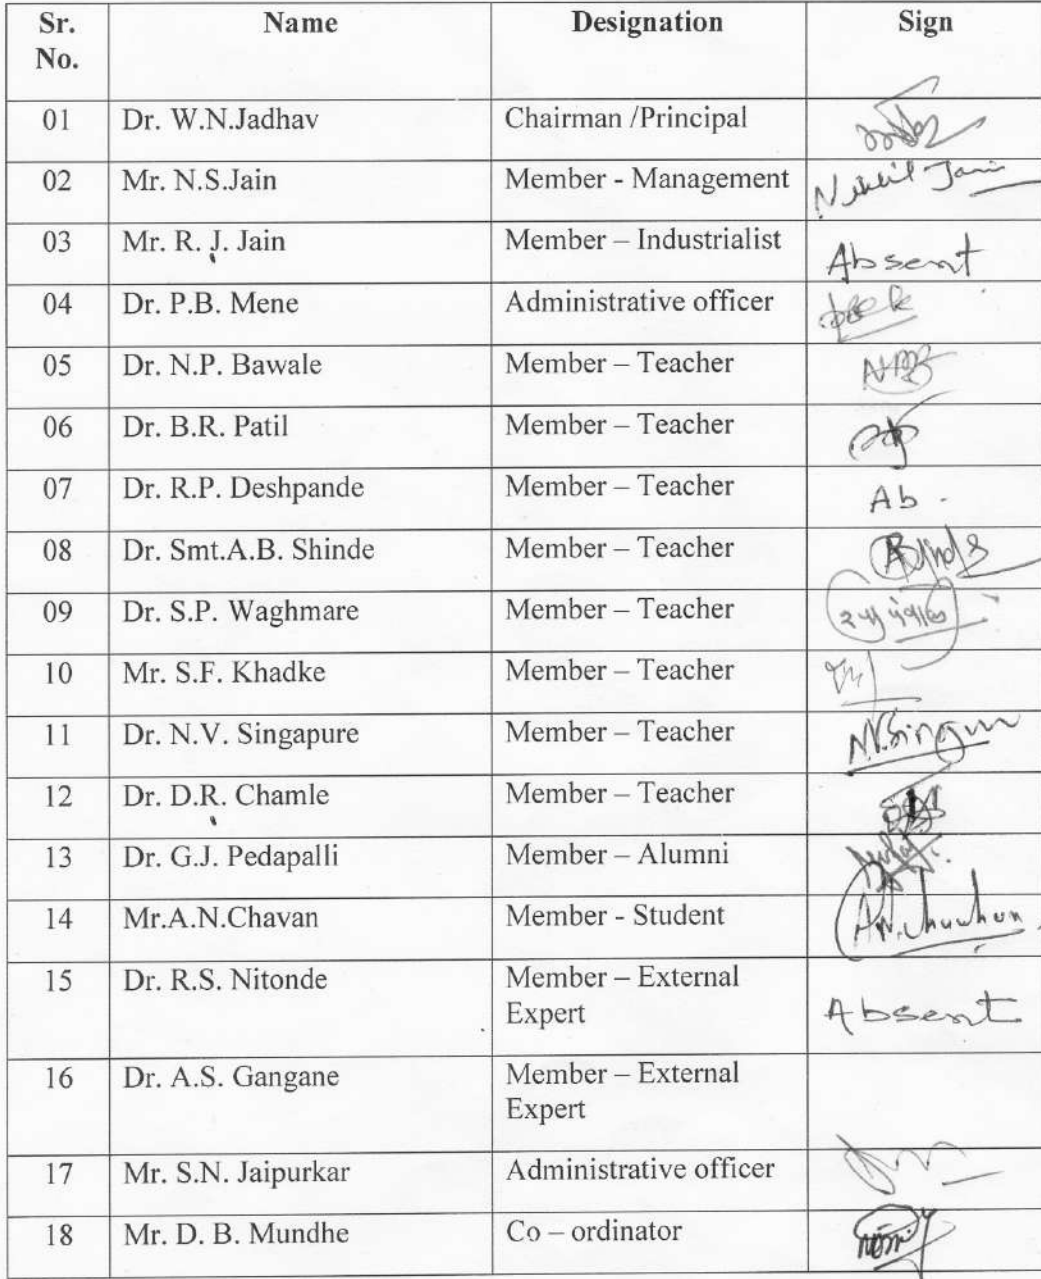 Sr. No. Name Designation Sign
01 Dr. W.N.Jadhav Chairman /Principal
02 Mr. N.S.Jain Member - Management Nikhil Jain
03 Mr. R. J. Jain Member – Industrialist Absent
04 Dr. P.B. Mene Administrative officer
05 Dr. N.P. Bawale Member – Teacher
06 Dr. B.R. Patil Member – Teacher
07 Dr. R.P. Deshpande Member – Teacher Ab.
08 Dr. Smt.A.B. Shinde Member – Teacher
09 Dr. S.P. Waghmare Member – Teacher
10 Mr. S.F. Khadke Member – Teacher
11 Dr. N.V. Singapure Member – Teacher
12 Dr. D.R. Chamle Member – Teacher
13 Dr. G.J. Pedapalli Member – Alumni
14 Mr.A.N.Chavan Member - Student
15 Dr. R.S. Nitonde Member – External Expert Absent
16 Dr. A.S. Gangane Member – External Expert
17 Mr. S.N. Jaipurkar Administrative officer
18 Mr. D. B. Mundhe Co – ordinator